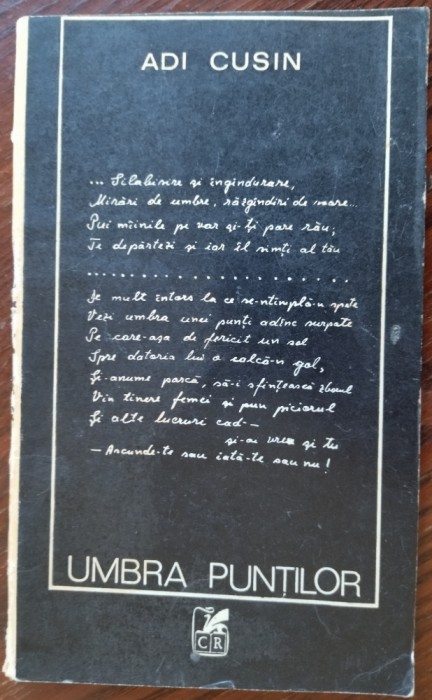 ADI CUSIN
... Silabisire și îngîndurare,
Mirări de umbre, răzgîndiri de soare...
Pui mîinile pe var și-ți pare rău;
Te depărtezi și iar îl simți al tău
..........................
De mult întors la ce se-ntîmplă-n spate
Vezi umbra unei punți adînc surpate
Pe care-așa de fericit un sol
Spre datoria lui a călcă-n gol,
Și-anume parcă, să-i sfințească zborul
Vin tinere femei și pun piciorul
Și alte lucruri cad —
și-ai vrea și tu
— Ascunde-te sau iată-te sau nu!
UMBRA PUNȚILOR
CR